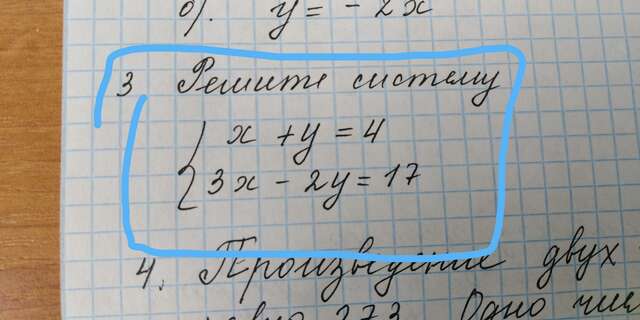 б). y = - 2x
3 Решите систему
x + y = 4
3x - 2y = 17
4. Произведение двух
273. Одно